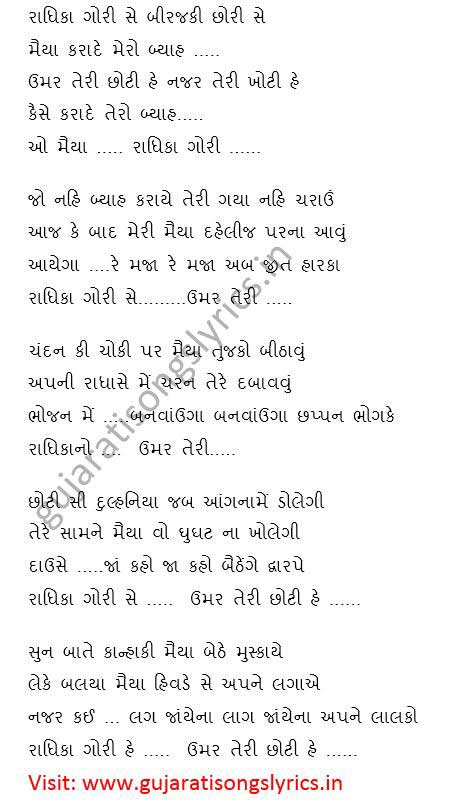 રાધિકા ગોરી સે બીરજકી છોરી સે
મૈયા કરાદે મેરો બ્યાહ .....
ઉમર તેરી છોટી હે નજર તેરી ખોટી હે
કૈસે કરાદે તેરો બ્યાહ.....
ઓ મૈયા ..... રાધિકા ગોરી ......
જો નહિ બ્યાહ કરાયે તેરી ગયા નહિ ચરાઉં
આજ કે બાદ મેરી મૈયા દહેલીજ પરના આવું
આયેગા ....રે મજા રે મજા અબ જીત હારકા
રાધિકા ગોરી સે.........ઉમર તેરી .....
ચંદન કી ચોકી પર મૈયા તુજકો બીઠાવું
અપની રાધાસે મેં ચરન તેરે દબાવવું
ભોજન મેં .....બનવાંઉગા બનવાંઉગા છપ્પન ભોગકે
રાધિકાનો .... ઉમર તેરી.....
છોટી સી દુલ્હનિયા જબ આંગનામેં ડોલેગી
તેરે સામને મૈયા વો ઘુઘટ ના ખોલેગી
દાઉસે .....જાં કહો જા કહો બૈઠેંગે દ્વારપે
રાધિકા ગોરી સે ..... ઉમર તેરી છોટી હે ......
સુન બાતે કાન્હાકી મૈયા બેઠે મુસ્કાયે
લેકે બલયા મૈયા હિવડે સે અપને લગાએ
નજર કઈ ... લગ જાંયેના લાગ જાંયેના અપને લાલકો
રાધિકા ગોરી હે ..... ઉમર તેરી છોટી હે ......
Visit: www.gujaratisongslyrics.in
gujaratisongslyrics.in